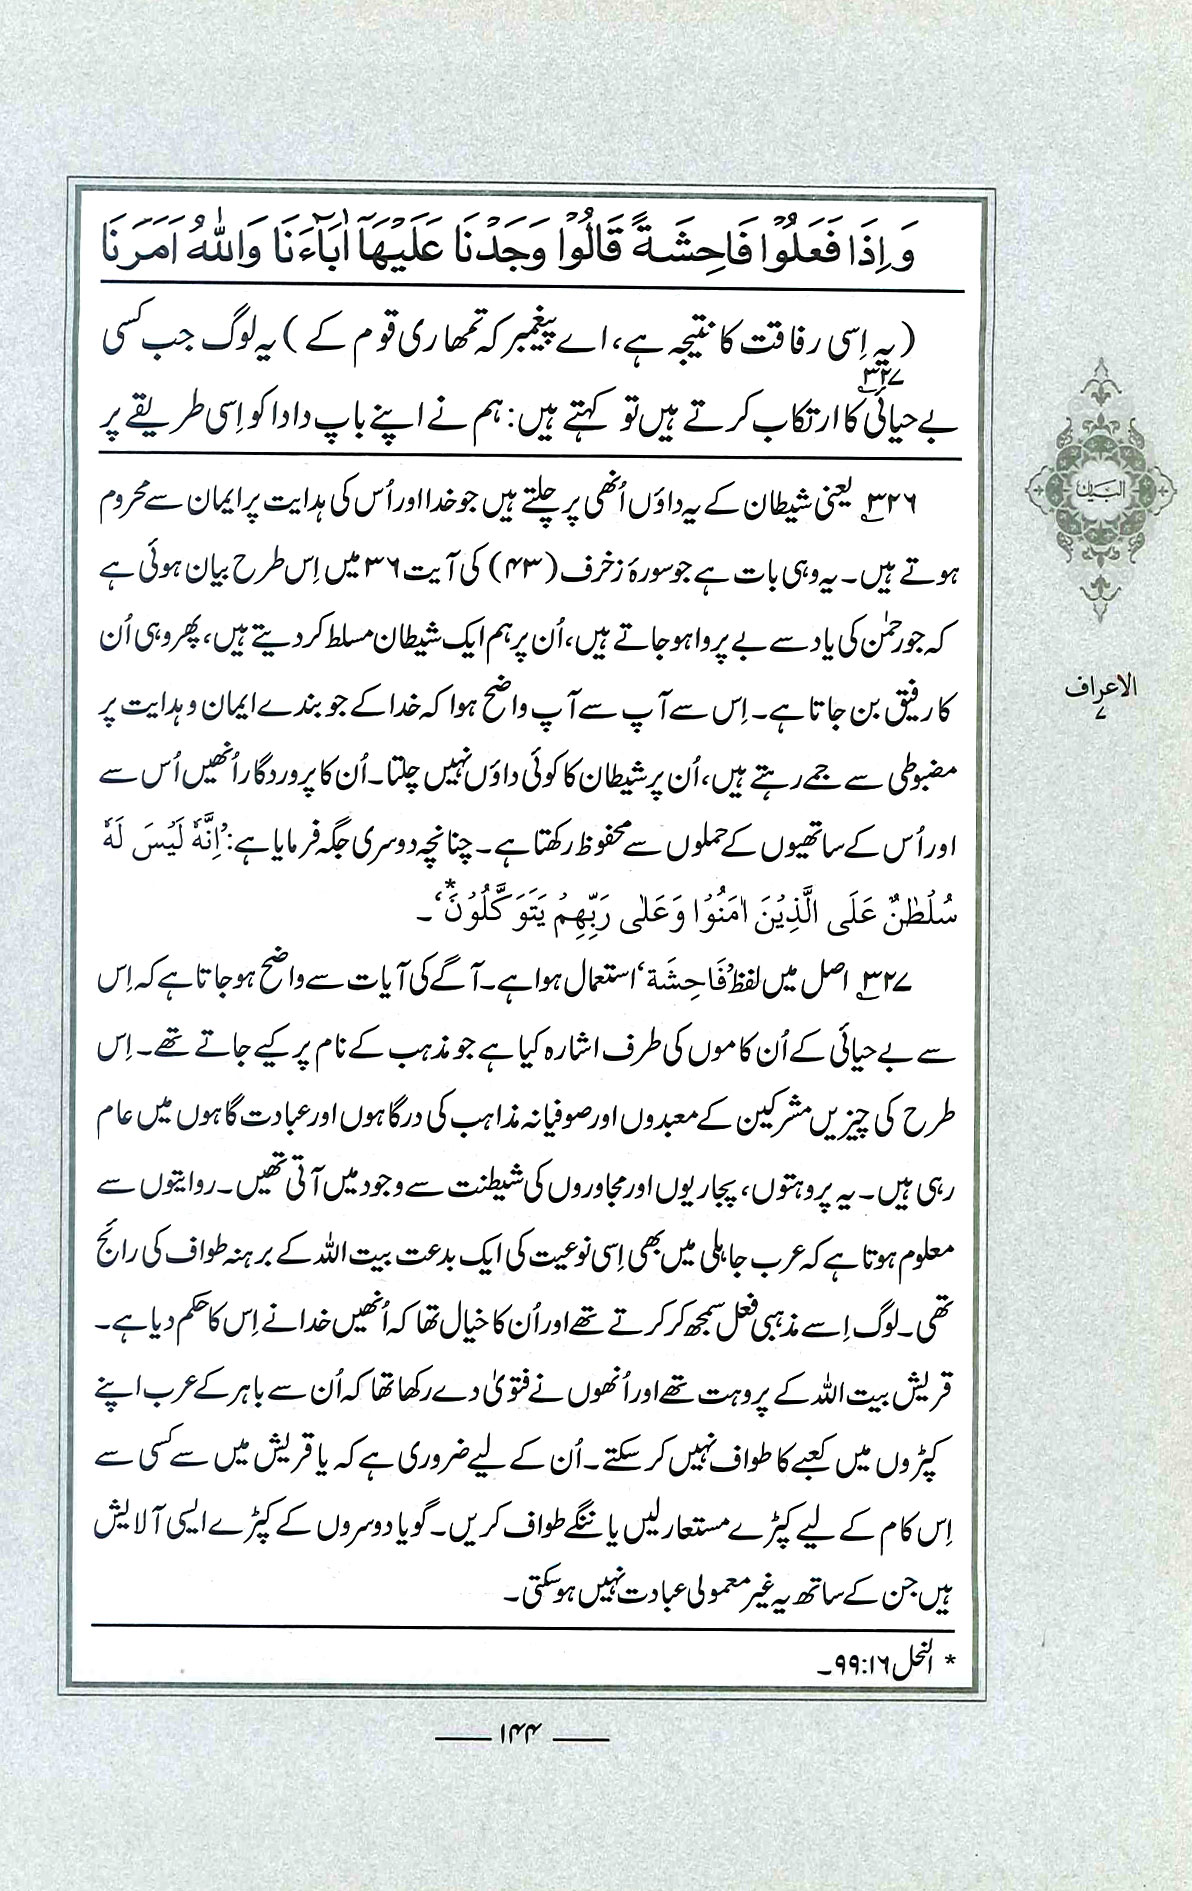 وَاِذَا فَعَلُوْا فَاحِشَةً قَالُوْا وَجَدْنَا عَلَيْهَآ اٰبَآءَنَا وَاللّٰهُ اَمَرَنَا
(یہ اِسی رفاقت کا نتیجہ ہے، اے پیغمبر کہ تمھاری قوم کے) یہ لوگ جب کسی
بے حیائی۳۲۷ کا ارتکاب کرتے ہیں تو کہتے ہیں: ہم نے اپنے باپ دادا کو اِسی طریقے پر
۳۲۶ یعنی شیطان کے یہ داؤں اُنھی پر چلتے ہیں جو خدا اور اُس کی ہدایت پر ایمان سے محروم
ہوتے ہیں۔ یہ وہی بات ہے جو سورۂ زخرف (۴۳) کی آیت ۳۶ میں اِس طرح بیان ہوئی ہے
کہ جو رحمٰن کی یاد سے بے پروا ہو جاتے ہیں، اُن پر ہم ایک شیطان مسلط کر دیتے ہیں، پھر وہی اُن
کا رفیق بن جاتا ہے۔ اِس سے آپ سے آپ واضح ہوا کہ خدا کے جو بندے ایمان و ہدایت پر
مضبوطی سے جمے رہتے ہیں، اُن پر شیطان کا کوئی داؤں نہیں چلتا۔ اُن کا پروردگار اُنھیں اُس سے
اور اُس کے ساتھیوں کے حملوں سے محفوظ رکھتا ہے۔ چنانچہ دوسری جگہ فرمایا ہے: ’اِنَّهٗ لَيْسَ لَهٗ
سُلْطٰنٌ عَلَى الَّذِيْنَ اٰمَنُوْا وَعَلٰى رَبِّهِمْ يَتَوَكَّلُوْنَ*‘۔
۳۲۷ اصل میں لفظ ’فَاحِشَة‘ استعمال ہوا ہے۔ آگے کی آیات سے واضح ہو جاتا ہے کہ اِس
سے بے حیائی کے اُن کاموں کی طرف اشارہ کیا ہے جو مذہب کے نام پر کیے جاتے تھے۔ اِس
طرح کی چیزیں مشرکین کے معبدوں اور صوفیانہ مذاہب کی درگاہوں اور عبادت گاہوں میں عام
رہی ہیں۔ یہ پروہتوں، پجاریوں اور مجاوروں کی شیطنت سے وجود میں آتی تھیں۔ روایتوں سے
معلوم ہوتا ہے کہ عرب جاہلی میں بھی اِسی نوعیت کی ایک بدعت بیت اللہ کے برہنہ طواف کی رائج
تھی۔ لوگ اِسے مذہبی فعل سمجھ کر کرتے تھے اور اُن کا خیال تھا کہ اُنھیں خدا نے اِس کا حکم دیا ہے۔
قریش بیت اللہ کے پروہت تھے اور اُنھوں نے فتویٰ دے رکھا تھا کہ اُن سے باہر کے عرب اپنے
کپڑوں میں کعبے کا طواف نہیں کر سکتے۔ اُن کے لیے ضروری ہے کہ یا قریش میں سے کسی سے
اِس کام کے لیے کپڑے مستعار لیں یا ننگے طواف کریں۔ گویا دوسروں کے کپڑے ایسی آلایش
ہیں جن کے ساتھ یہ غیر معمولی عبادت نہیں ہو سکتی۔
* النحل ۱۶:۹۹۔
۱۴۴
البیان
الاعراف
۷